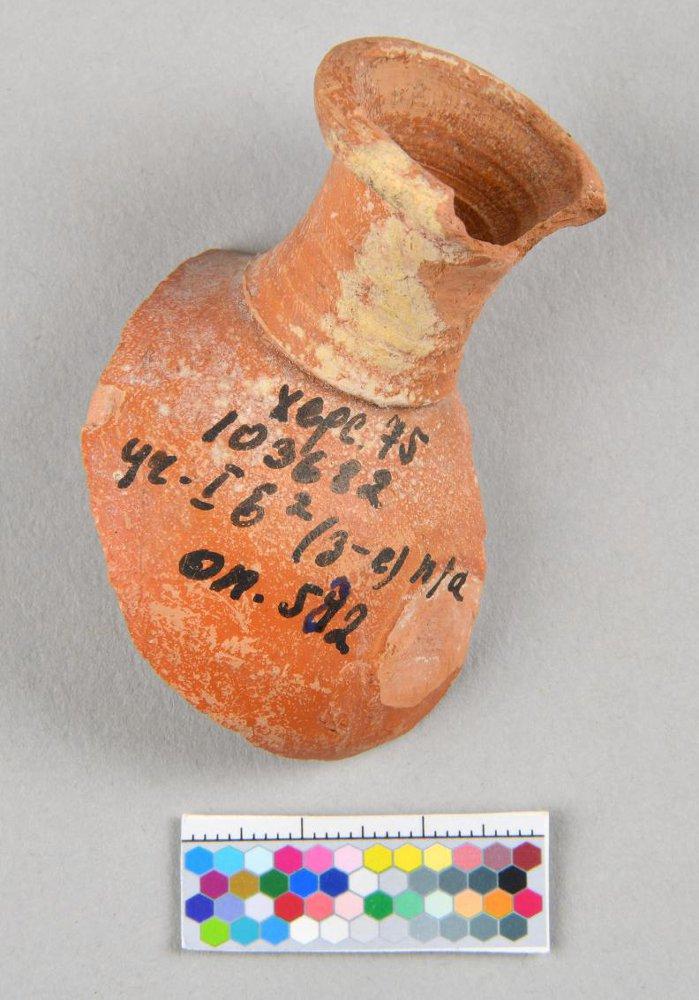 Херс. 75
103682
уч. I б² (З-е) п/а
оп. 582